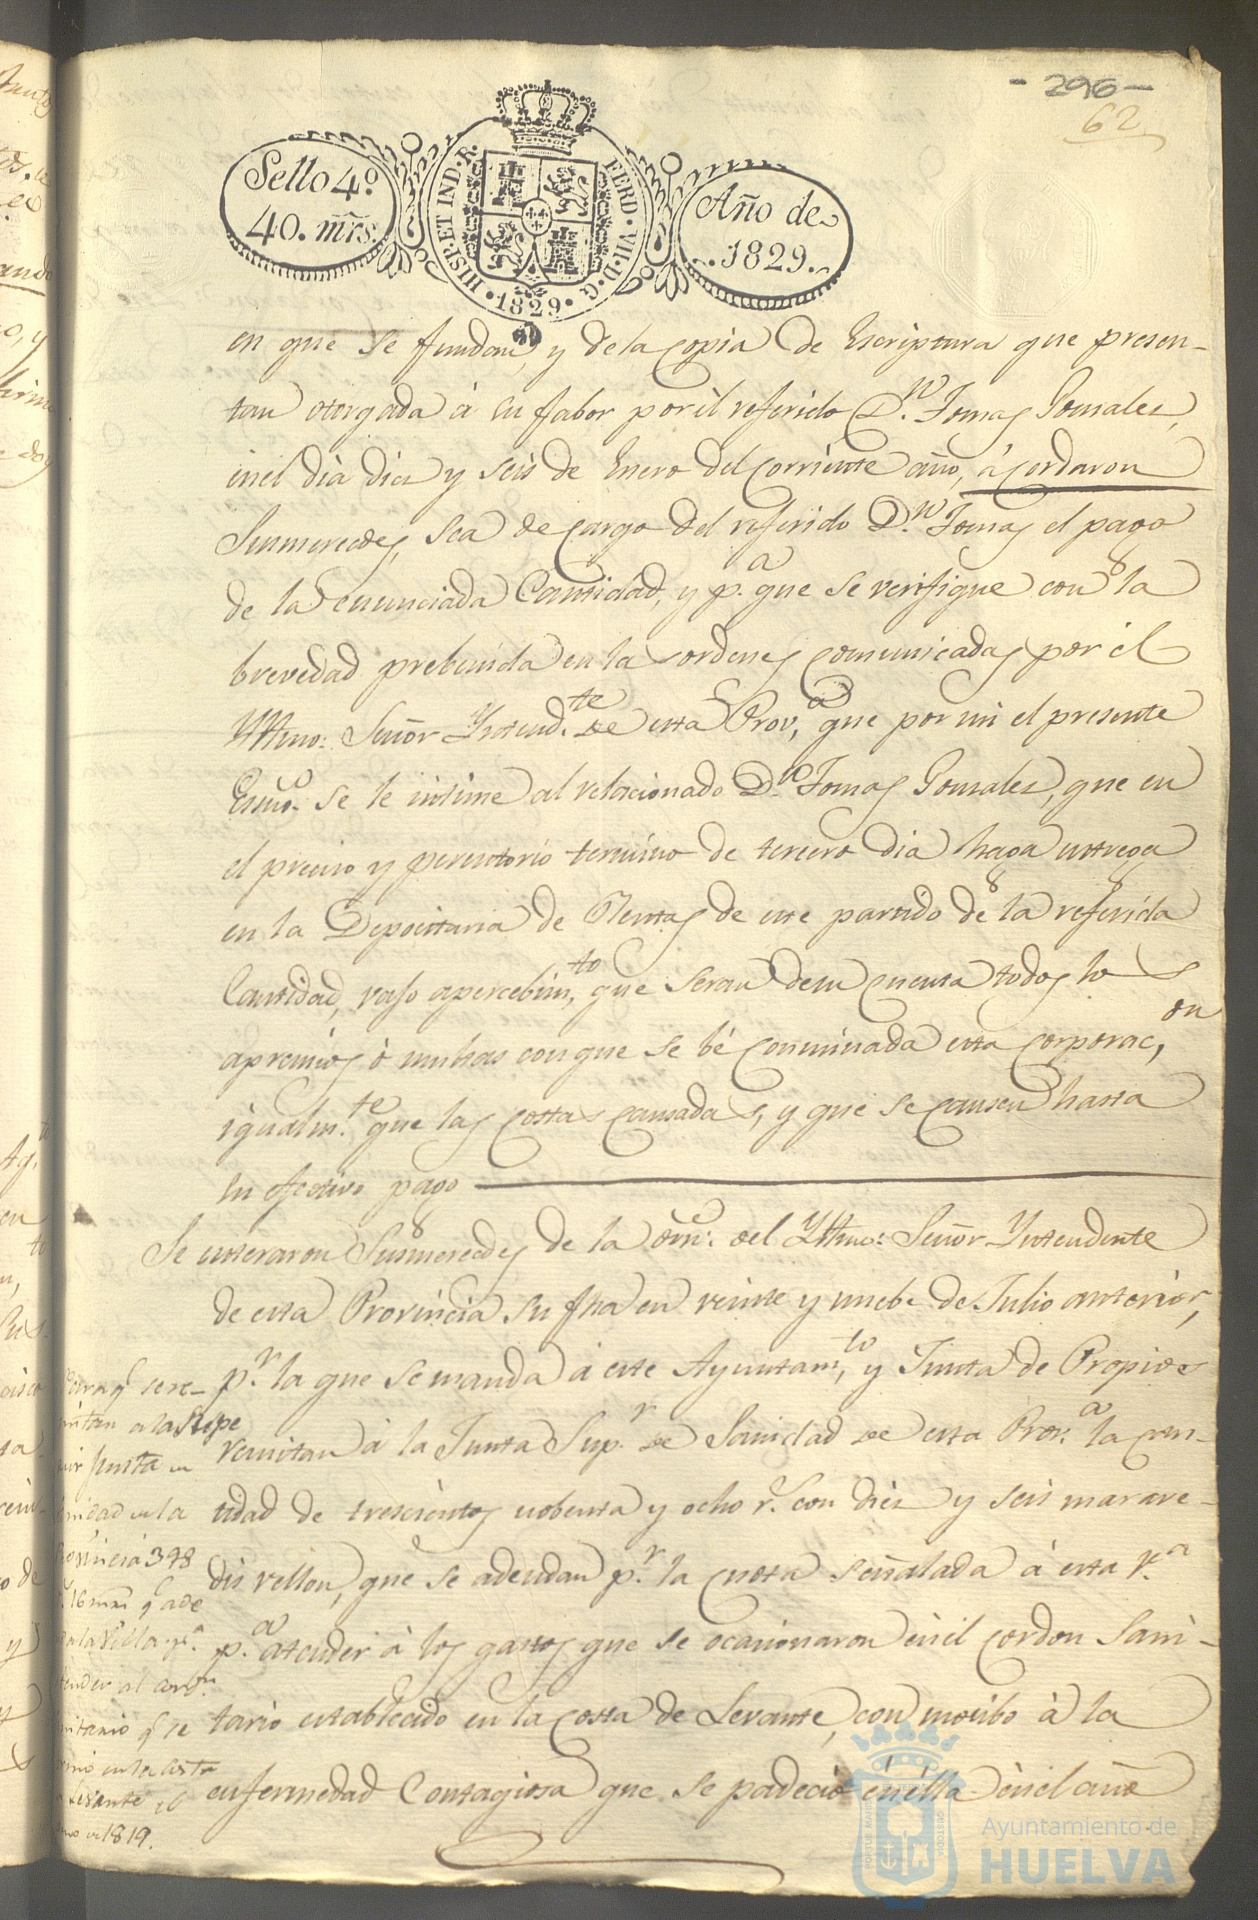 - 296 -
62
Sello 4º
40. mrs.
HISP. ET IND. R.
FERD. VII. D. G.
1829
Año de
1829.
en que se fundan, y de la copia de Escriptura que presen-
tan otorgada á su fabor por il referido D.n Tomas Gonsales,
inel dia dies y seis de Enero del corriente año, ácordaron
Susmercedes, sea de cargo del referido D.n Tomas el pago
de la enunciada Cantidad, y p.a que se verifique con la
brevedad prebenida en las ordenes comunicadas por él
Yltmo: Señor Yntend.te de esta Prov,a que por mi el presente
Essno. se le intime al relacionado D.n Tomas Gonsales, que en
el preciso y perentorio termino de tercero dia haga entrega
en la Depocitaria de Rentas de este partido de la referida
Cantidad, vajo apercebim,to que seran desu cuenta todos los
apremios ò multas con que se bé conminada esta corporac,on
igualm.te que las costas causadas, y que se causen hasta
su efectivo pago
Se enteraron Susmercedes de la orn: del Yltmo: Señor Yntendente
de esta Provincia su fha en veinte y nuebe de Julio anterior,
p.r la que se manda á este Ayuntam,to y Junta de Propios
remitan á la Junta Sup.r de Sanidad de esta Prov.a la can-
tidad de trescientos nobenta y ocho r.s con dies y seis marave-
dis vellon, que se adeudan p.r la cuota señalada á esta V.a
p.a atender à los gastos que se ocacionaron enèl cordon Sani-
tario establecido en la costa de Levante, con motibo à la
enfermedad Contagiosa que se padeció en élla ènel año
Para q.e se re-
mitan a la Supe
rior Junta de
Sanidad de la
Provincia 398
r.s 16 mrs q.e ade
da la Villa p.a
atender al cordon
sanitario q.e se
formó en la costa
de Levante el
año de 1819.
Ayuntamiento de
HUELVA